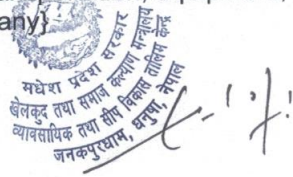 any}
मधेश प्रदेश सरकार
खेलकुद तथा समाज कल्याण मन्त्रालय
व्यावसायिक तथा सीप विकास तालिम केन्द्र
जनकपुरधाम, धनुषा, नेपाल